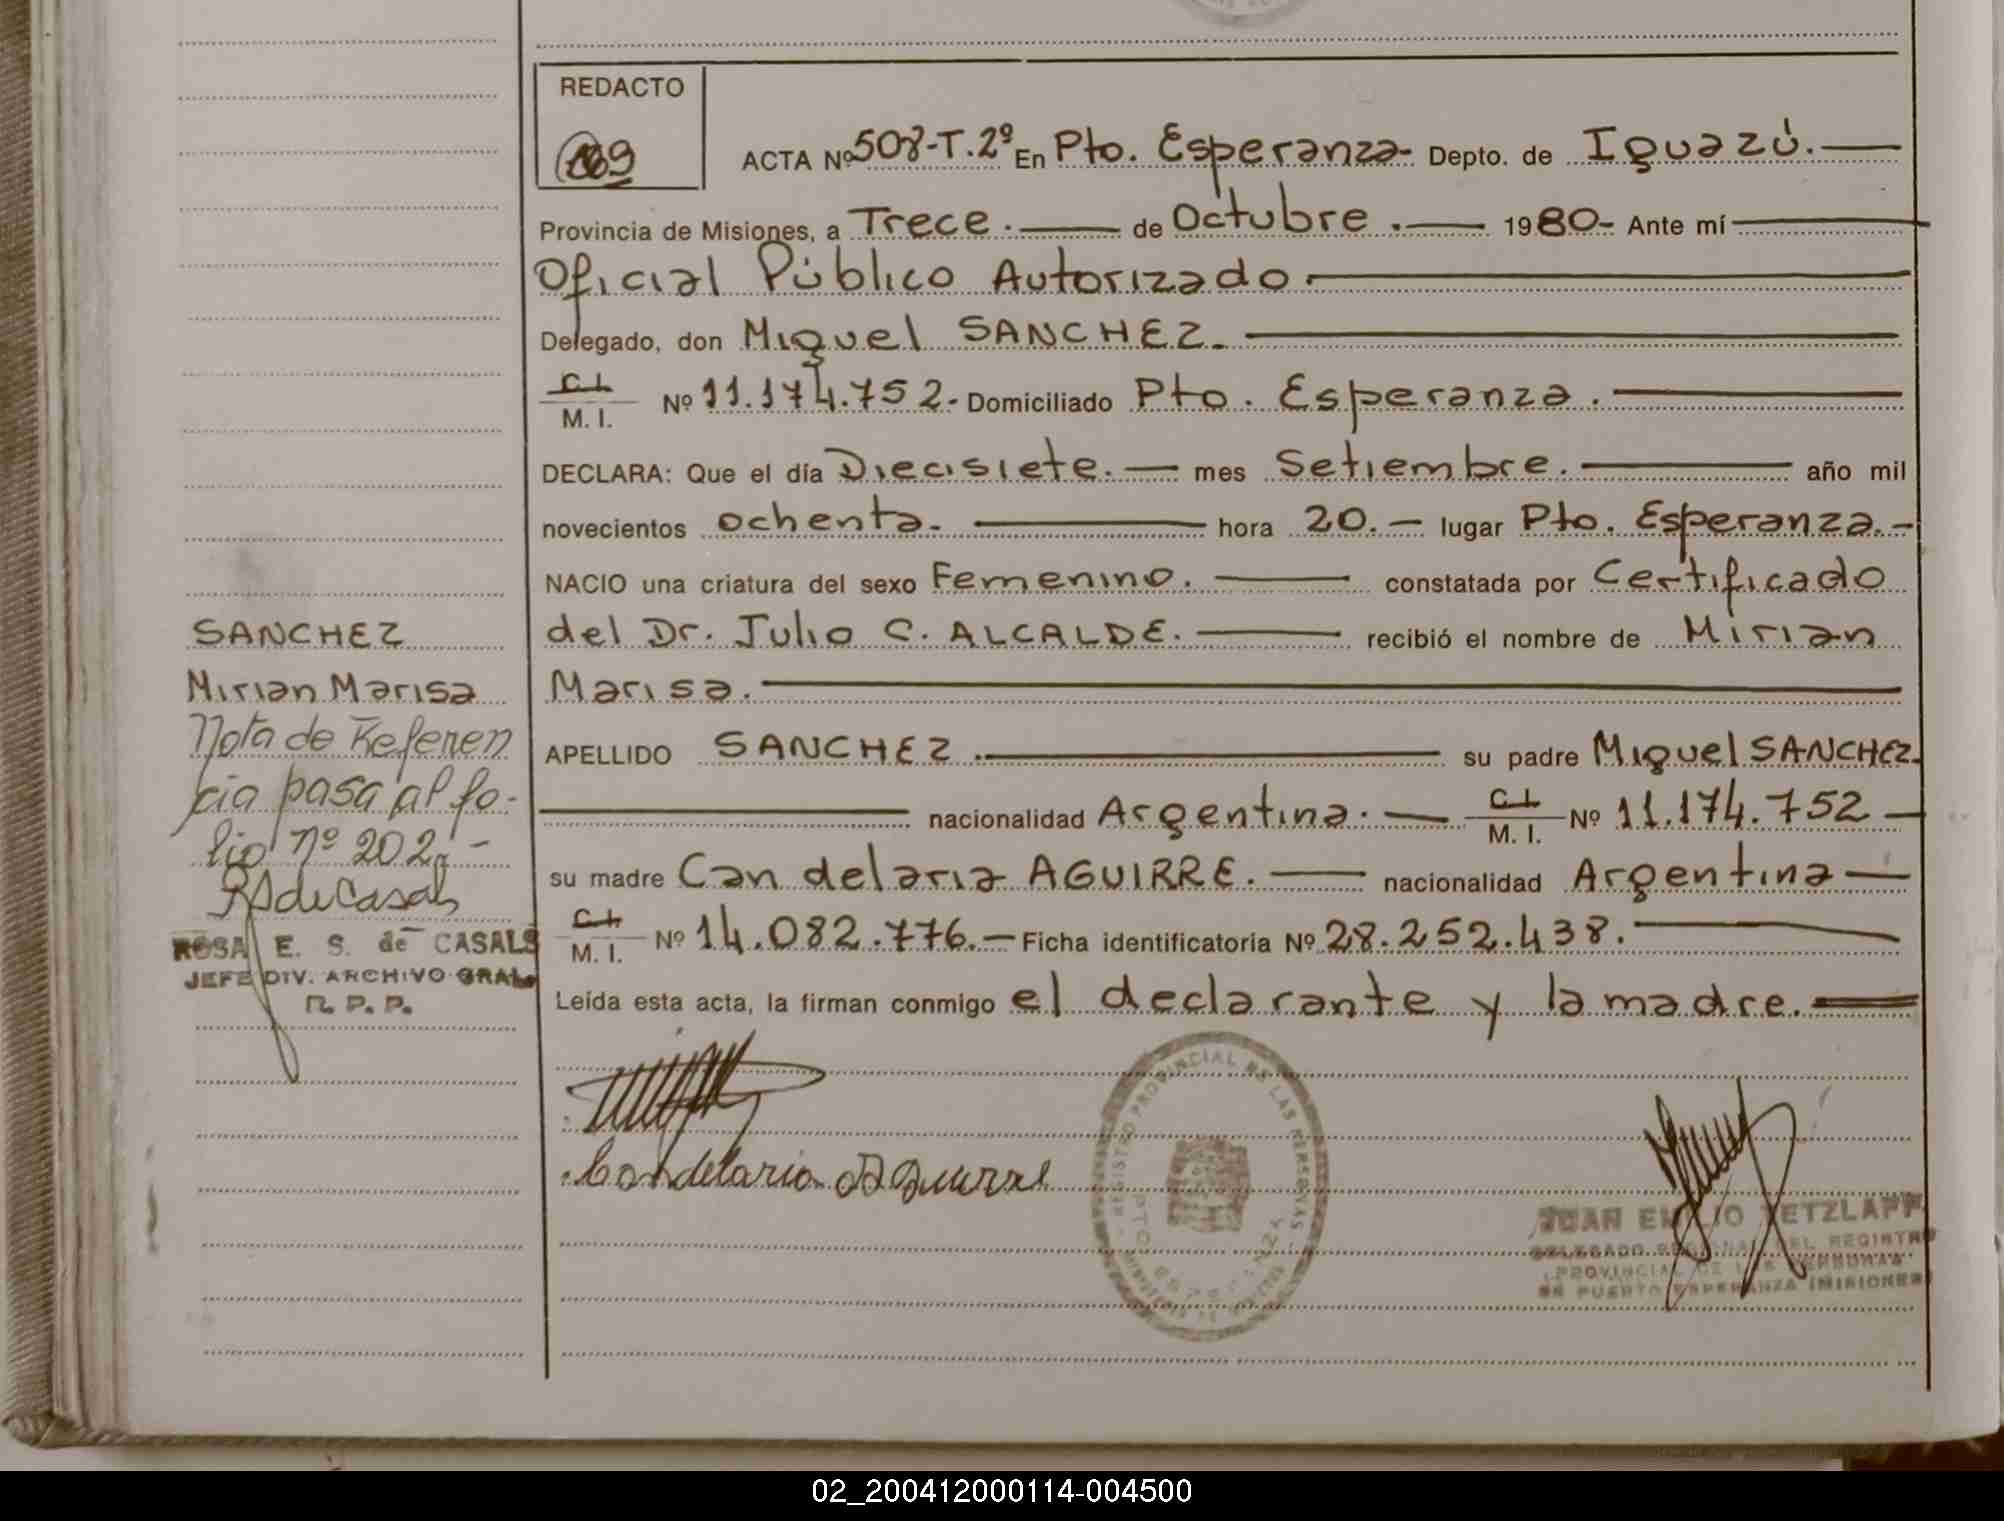 REDACTO
ACTA Nº 508-T.2º En Pto. Esperanza- Depto. de Iguazú.
Provincia de Misiones, a Trece. de Octubre. 1980- Ante mí
Oficial Público Autorizado.
Delegado, don Miguel SANCHEZ.
C.I.
M. I. Nº 11.174.752.- Domiciliado Pto. Esperanza.
DECLARA: Que el día Diecisiete. mes Setiembre. año mil
novecientos ochenta. hora 20.- lugar Pto. Esperanza.-
NACIO una criatura del sexo Femenino. constatada por Certificado
del Dr. Julio C. ALCALDE. recibió el nombre de Mirian
Marisa.
APELLIDO SANCHEZ. su padre Miguel SANCHEZ.
nacionalidad Argentina. C.I.
M. I. Nº 11.174.752
su madre Candelaria AGUIRRE. nacionalidad Argentina
C.I.
M. I. Nº 14.082.776.- Ficha identificatoria Nº 28.252.438.
Leída esta acta, la firman conmigo el declarante y la madre.
Candelaria Aguirre
REGISTRO PROVINCIAL DE LAS PERSONAS
PTO ESPERANZA
JUAN EMILIO TETZLAFF
DELEGADO REGIONAL DEL REGISTRO
PROVINCIAL DE LAS PERSONAS
DE PUERTO ESPERANZA (MISIONES)
SANCHEZ
Mirian Marisa
Nota de Referen
cia pasa al fo-
lio nº 202.-
RSdeCasals
ROSA E. S. de CASALS
JEFE DIV. ARCHIVO GRAL.
R. P. P.
02_200412000114-004500